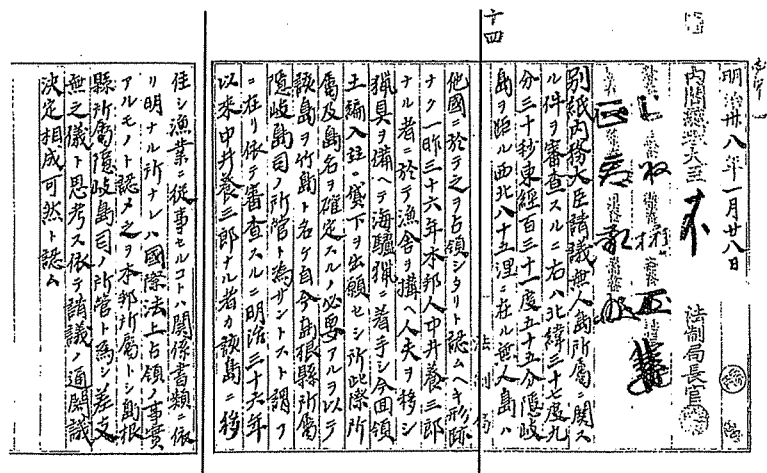 十四
明治卅八年一月廿八日
内閣總理大臣
法制局長官
別紙内務大臣請議無人島所屬ニ関ス
ル件ヲ審査スルニ右ハ北緯三十七度九
分三十秒東經百三十一度五十五分隠岐
島ヲ距ル西北八十五浬ニ在ル無人島ハ
他國ニ於テ之ヲ占領シタリト認ムヘキ形跡
ナク一昨三十六年本邦人中井養三郎
ナル者ニ於テ漁舎ヲ構ヘ人夫ヲ移シ
獵具ヲ備ヘテ海驢獵ニ着手シ今回領
土編入並ニ貸下ヲ出願セシ所此際所
屬及島名ヲ確定スルノ必要アルヲ以テ
該島ヲ竹島ト名ケ自今島根縣所屬
隠岐島司ノ所管ト為サントスト謂フ
ニ在リ依テ審査スルニ明治三十六年
以来中井養三郎ナル者カ該島ニ移
住シ漁業ニ従事セルコトハ関係書類ニ依
リ明ナル所ナレハ國際法上占領ノ事實
アルモノト認メ之ヲ本邦所屬トシ島根
縣所屬隠岐島司ノ所管ト為シ差支
無之儀ト思考ス依テ請議ノ通閣議
決定相成可然ト認ム
法制局